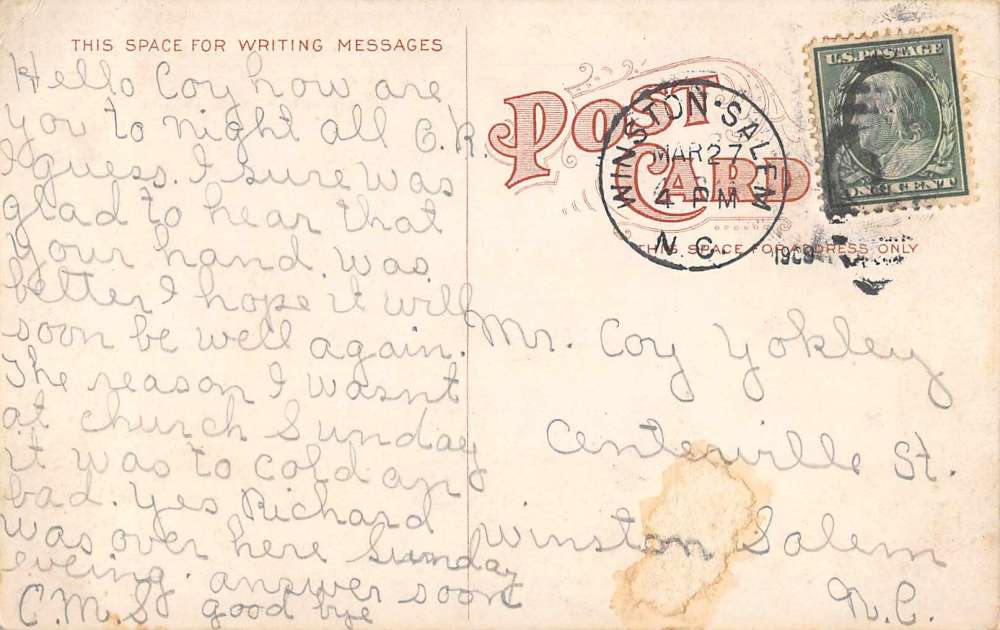 THIS SPACE FOR WRITING MESSAGES
Hello Coy how are
you to night all O.K.
I guess. I sure was
glad to hear that
your hand. was
better I hope it will
soon be well again.
The reason I wasnt
at church Sunday
it was to cold an
bad. yes Richard
was over here Sunday
eveing. answer soon
C.M.S. good bye
POST CARD
THIS SPACE FOR ADDRESS ONLY
WINSTON-SALEM
MAR 27
4 PM
N.C.
1909
U.S. POSTAGE
ONE CENT
Mr. Coy Yokley
Centerville St.
Winston Salem
N.C.